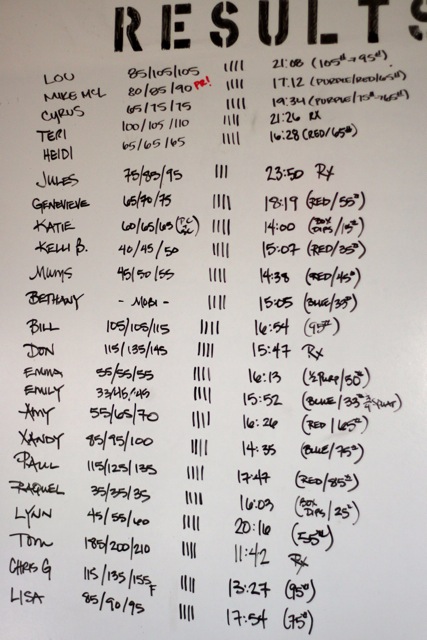 RESULTS
LOU 85/105/105 |||| 21:08 (105#→95#)
MIKE MCL 80/85/90 PR! |||| 17:12 (PURPLE/RED/65#)
CYRUS 65/75/75 |||| 19:34 (PURPLE/75#→65#)
TERI 100/105/110 |||| 21:26 RX
HEIDI 65/65/65 |||| 16:28 (RED/65#)
JULES 75/83/95 ||| 23:50 Rx
GENEVIEVE 65/70/75 |||| 18:19 (RED/55#)
KATIE 60/65/65 |||| 14:00 (BOX DIPS/15#)
KELLI B. 40/45/50 |||| 15:07 (RED/35#)
MUMS 45/50/55 |||| 14:38 (RED/45#)
BETHANY - MOBI - |||| 15:05 (BLUE/33#)
BILL 105/105/115 |||| 16:54 (95#)
DON 115/135/145 |||| 15:47 Rx
EMMA 55/55/55 |||| 16:13 (½ PURP/50#)
EMILY 33/45/45 |||| 15:52 (BLUE/33#
AMY 55/65/70 |||| 16:26 (RED/65#)
XANDY 85/95/100 |||| 14:35 (BLUE/75#)
PAUL 115/125/135 |||| 17:47 (RED/85#)
RAQUEL 35/35/35 |||| 16:03 (BOX DIPS/25#)
LYNN 45/55/60 |||| 20:16 (55#)
TOM 185/200/210 ||| 11:42 Rx
CHRIS G 115/135/155F |||| 13:27 (95#)
LISA 85/90/95 |||| 17:54 (75#)